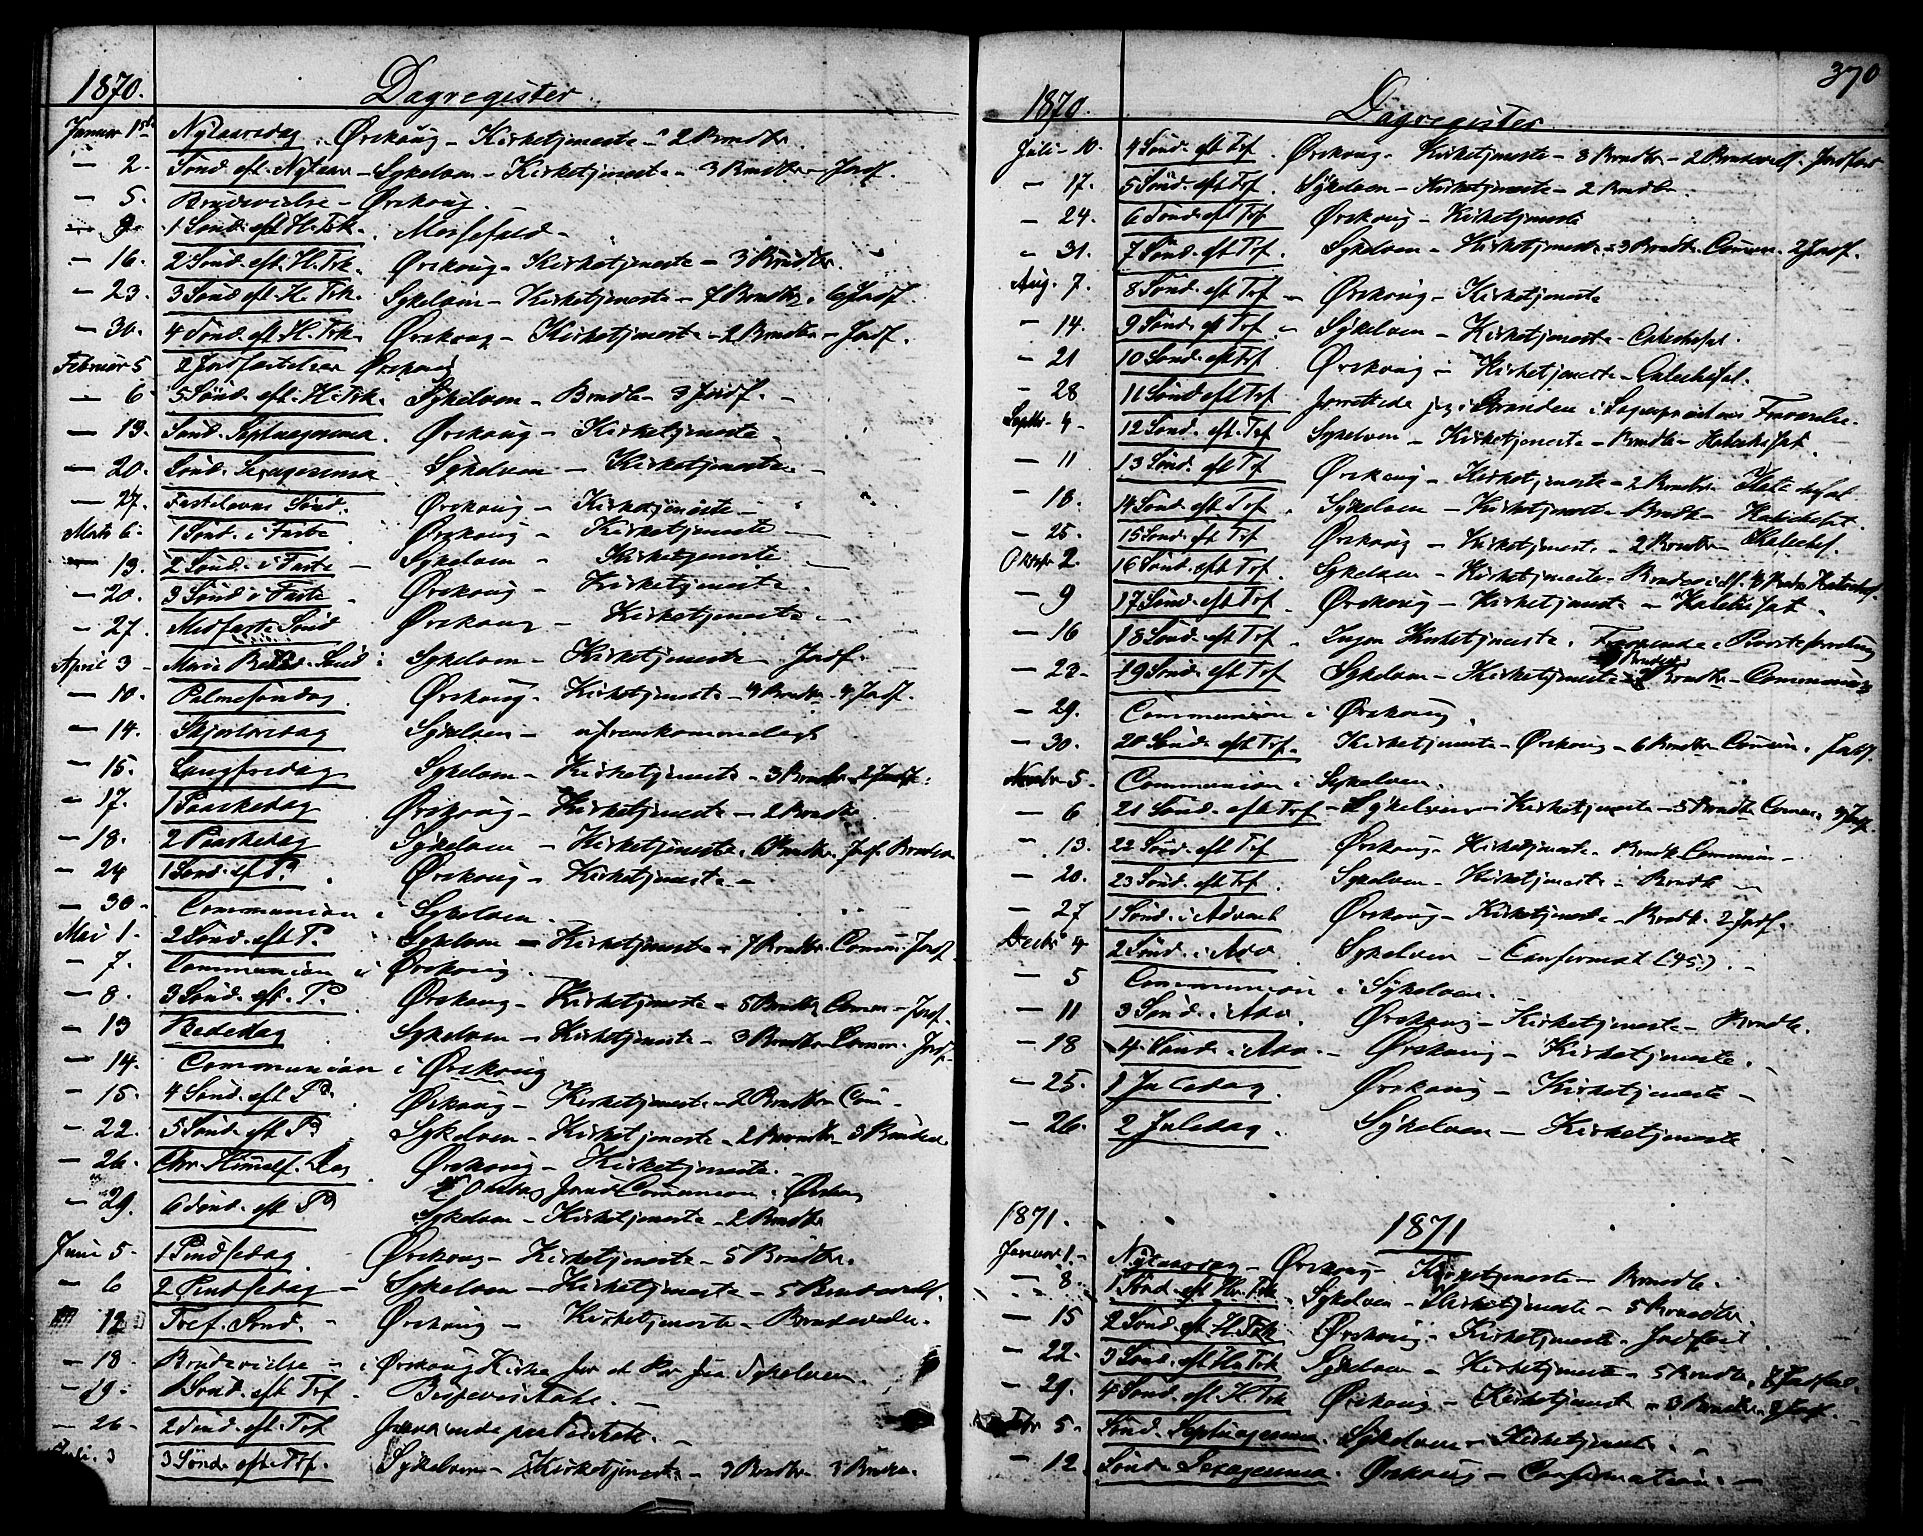 1870. Dagregister
Januar 1ste Nytaarsdag. Ørskoug - Kirketjeneste - 2 Barndbr.
— 2. Sönd. eft. Nytaar - Sykelven - Kirketjeneste - 3 Barndbr - Jordf.
— 5. Brudevielse - Ørskoug.
— 9. 1 Sönd. eft. H. Trk. Messefald -
— 16. 2 Sönd. eft. H. Trk. Ørskoug - Kirketjeneste - 3 Barndbr.
— 23. 3 Sönd. eft. H. Trk. Sykelven - Kirketjeneste - 7 Barndb. 6 Jordf.
— 30. 4 Sönd. eft. H. Trk. Ørskoug - Kirketjeneste - 2 Barndbr - Jordf.
Februar 5 2 Jordfæstelser Ørskoug
— 6. 5 Sönd. eft. H. Trk. Sykelven - Barndb - 3 Jordf. -
— 13. Sönd. Septuagesima. Ørskoug - Kirketjeneste.
— 20. Sönd. Sexagesima Sykelven - Kirketjeneste -
— 27. Fastelavns Sönd. Ørskoug - Kirketjeneste -
Marts 6. 1 Sönd. i Faste Ørskoug - Kirketjeneste
— 13. 2 Sönd. i Faste - Sykelven - Kirketjeneste
— 20. 3 Sönd. i Faste - Ørskoug - Kirketjeneste
— 27. Midfaste Sönd Ørskoug - Kirketjeneste -
April 3 - Mariæ Bebud. Sönd. Sykelven - Kirketjeneste - Jordf.
— 10. Palmesöndag Ørskoug - Kirketjeneste - 4 Barndbr - 4 Jordf.
— 14. Skjærtorsdag Sykelven - ufremkommeligt
— 15. Langfredag Sykelven - Kirketjeneste - 3 Barndbr 2 Jordf.
— 17. 1 Paaskedag Ørskoug - Kirketjeneste - 2 Barndb
— 18. 2 Paaskedag Sykelven - Kirketjeneste. 6 Barndbr. Jordf. Brudev.
— 24 1 Sönd. eft P. Ørskoug - Kirketjeneste -
— 30. Communion i Sykelven.
Mai 1. 2 Sönd. eft P. Sykelven - Kirketjeneste - 7 Barndbr. Comun. Jordf.
— 7. Communion i Ørskoug.
— 8. 3 Sönd. eft. P. Ørskoug - Kirketjeneste - 5 Barndb. Comun - Jordf.
— 13 Bededag Sykelven - Kirketjeneste - 3 Barndbr Comun. Jordf.
— 14. Communion i Ørskoug
— 15. 4 Sönd. eft P. Ørskoug - Kirketjeneste - 2 Barndbr Com -
— 22. 5 Sönd. eft P. Sykelven - Kirketjeneste - 2 Barndbr 3 Brudev.
— 26. Chr. Himmelf. Dag Ørskoug - Kirketjeneste. -
Comunion i Ørskoug
— 29. 6 Sönd. eft P. Sykelven - Kirketjeneste - 2 Barndbr
Juni 5. 1 Pindsedag Ørskoug - Kirketjeneste - 5 Barndbr.
— 6 2 Pindsedag - Sykelven - Kirketjeneste - 5 Brudevielf.
12 Tref. Sönd. - Ørskoug - Kirketjeneste - Brudevielse.
— 18. Brudevielse - i Ørskoug Kirke for et Par fra Sykelven.
— 19. 1 Sönd. eft Tref - Bispevisitats. -
— 26 - 2 Sönd. eft. Tref Fraværende paa Visitats. -
Juli. 3 3 Sönd. eft. Trf. Sykelven - Kirketjeneste - 3 Barndbr 3 Brudev.
370
1870. Dagregister
Juli - 10. 4 Sönd. eft Tref. Ørskoug - Kirketjeneste - 3 Barndbr - 2 Brudevielf. Jordfæst
— 17. 5 Sönd. eft Tref. Sykelven - Kirketjeneste - 2 Barndbr.
— 24. 6 Sönd. eft Tref Ørskoug - Kirketjeneste
— 31. 7 Sönd. eft Tref. Sykelven - Kirketjeneste - 3 Barndbr. Comun. 2 Jordf.
Aug. 7. 8 Sönd. eft Tref - Ørskoug - Kirketjeneste
— 14. 9 Sönd. eft Tref - Sykelven - Kirketjeneste - Catechisat.
— 21 10 Sönd. eft Tref. Ørskoug - Kirketjeneste - Catechisat.
— 28 11 Sönd. eft Tref forrettede jeg i Stranden i Sogneprestens Fraværelse.
Septbr. 4 - 12 Sönd. eft. Tref Sykelven - Kirketjeneste - Barndb - Katechisat.
— 11 13 Sönd. eft Tref Ørskoug - Kirketjeneste - 2 Barndbr - Katechisat
— 18. 14 Sönd. eft Tref. Sykelven - Kirketjeneste - Barndb - Katechisat.
— 25. 15 Sönd. eft Tref Ørskoug - Kirketjeneste - 2 Barndbr - Katechis.
Oktobr 2. 16 Sönd. eft Tref. Sykelven - Kirketjeneste - Brudevielf. 4 Barndbr Katechis.
— 9 17 Sönd. eft Tref. Ørskoug - Kirketjeneste - Katechisat.
— 16 18 Sönd. eft Tref. Ingen Kirketjeneste. Fraværende i
— 23. 19 Sönd. eft Tref Sykelven - Kirketjeneste - Barndb - Communion
— 29. Communion i Ørskoug.
— 30. 20 Sönd. eft Tref. Kirketjeneste - Ørskoug - 6 Barndbr - Comun. Jordf.
Novbr 5. Communion i Sykelven.
— 6 21 Sönd. eft Tref - Sykelven - Kirketjeneste - 5 Barndb. Comun. 4 Jordf
— 13. 22 Sönd. eft Tref Ørskoug - Kirketjeneste - Barndb Commun -
— 20. 23 Sönd. eft Tref. Sykelven - Kirketjeneste - Barndb -
— 27 1 Sönd. i Advent Ørskoug - Kirketjeneste - Barndb. 2 Jordf.
Decbr 4. 2 Sönd. i Adv Sykelven - Confirmat (45). -
— 5 Communion i Sykelven.
— 11 3 Sönd. i Adv. Ørskoug - Kirketjeneste - Barndb.
— 18 4 Sönd. i Adv. - Ørskoug - Kirketjeneste.
— 25. 1 Juledag. Ørskoug - Kirketjeneste -
— 26. 2 Juledag. Sykelven - Kirketjeneste
1871. 1871
Januar 1 - Nytaarsdag - Ørskoug - Kirketjeneste - Barndb.
— 8. 1 Sönd. eft H. Trk - Sykelven - Kirketjeneste - 5 Barndbr.
— 15 2 Sönd. eft H. Trk Ørskoug - Kirketjeneste - Jordfæst.
— 22. 3 Sönd. eft H. Trk Sykelven - Kirketjeneste - 5 Barndb. 2 Jordfæst.
— 29. 4 Sönd. eft. H. Trk Ørskoug - Kirketjeneste - 3 Barndbr. 2 Jordf. -
Febr 5. Sönd. Septuagesima. Sykelven - Kirketjeneste.
— 12. Sönd. Sexagesima. Ørskoug - Confirmation. -